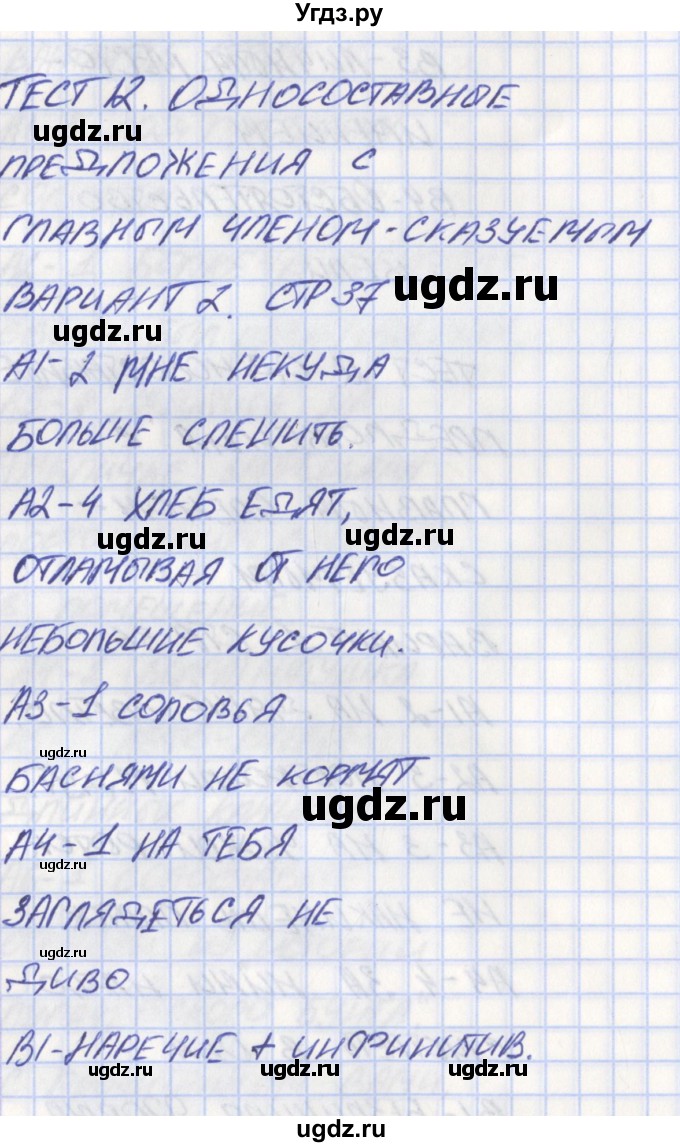 Угдз.ру
ТЕСТ 12. ОДНОСОСТАВНЫЕ
ugdz.ru
ПРЕДЛОЖЕНИЯ С
ГЛАВНЫМ ЧЛЕНОМ-СКАЗУЕМЫМ
ugdz.ru
ВАРИАНТ 2. СТР 37
ugdz.ru
А1-2 МНЕ НЕКУДА
БОЛЬШЕ СПЕШИТЬ.
А2-4 ХЛЕБ ЕДЯТ,
ugdz.ru ugdz.ru
ОТЛАМЫВАЯ ОТ НЕГО
НЕБОЛЬШИЕ КУСОЧКИ.
А3-1 СОЛОВЬЯ
ugdz.ru
БАСНЯМИ НЕ КОРМЯТ
ugdz.ru
А4-1 НА ТЕБЯ
ugdz.ru
ЗАГЛЯДЕТЬСЯ НЕ
ugdz.ru
ДИВО
В1-НАРЕЧИЕ + ИНФИНИТИВ.
ugdz.ru ugdz.ru ugdz.ru
ugdz.ru